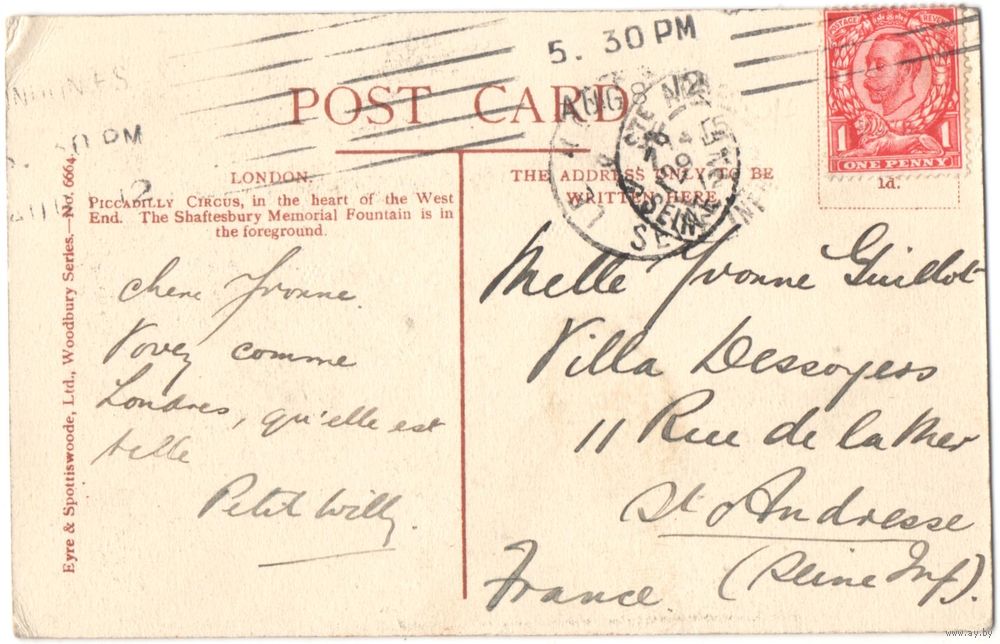 5. 30 PM
AUG 8
12
POSTAGE REVENUE
1 1
ONE PENNY
1d.
POST CARD
LONDON.
PICCADILLY CIRCUS, in the heart of the West
End. The Shaftesbury Memorial Fountain is in
the foreground.
THE ADDRESS ONLY TO BE
WRITTEN HERE
Eyre & Spottiswoode, Ltd., Woodbury Series.—No. 6664.
chere Yvonne
Voyez comme
Londres, qu'elle est
belle
Petit Willy.
Melle Yvonne Guillot
Villa Dessoyers
11 Rue de la Mer
St Andresse
(Seine Inf).
France
www.ay.by